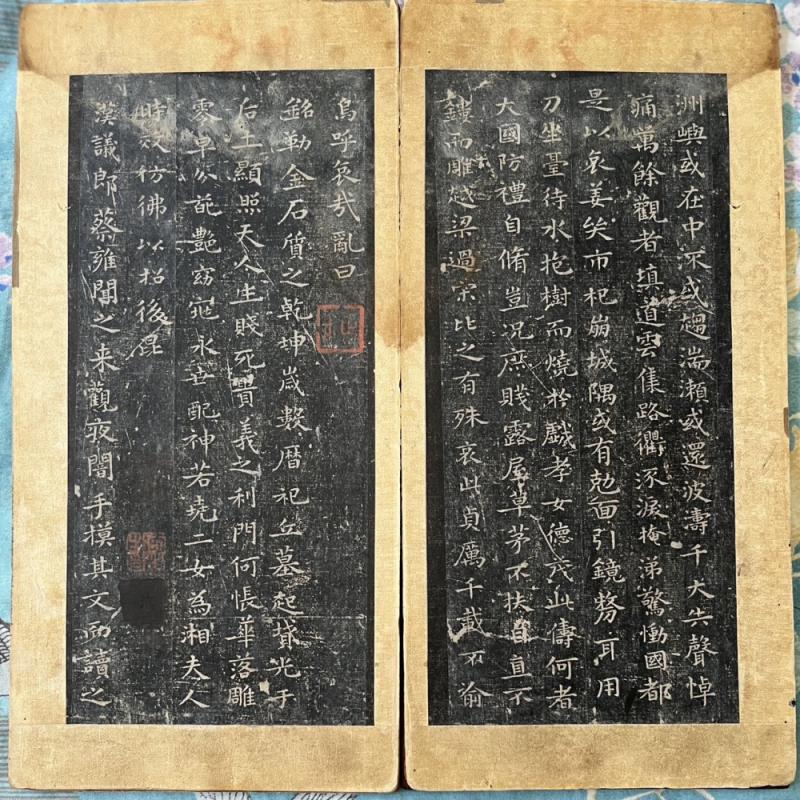 洲嶼或在中沠或趨湍瀨或還波濤千夫失聲悼
痛萬餘觀者填道雲集路衢泳淚掩涕驚慟國都
是以哀姜哭市杞崩城隅或有勊面引鏡剺耳用
刀坐臺待水抱樹而燒於戲孝女德茂此儔何者
大國防禮自脩豈况庶賤露屋草茅不扶自直不
鏤而雕越梁過宋比之有殊哀此貞厲千載不渝
烏呼哀哉亂曰
銘勒金石質之乾坤歲數曆祀丘墓起墳光于
后土顯照天人生賤死貴義之利門何悵華落雕
零早分葩艷窈窕永世配神若堯二女為湘夫人
時效彷彿以招後昆
漢議郎蔡雍聞之来觀夜闇手摸其文而讀之